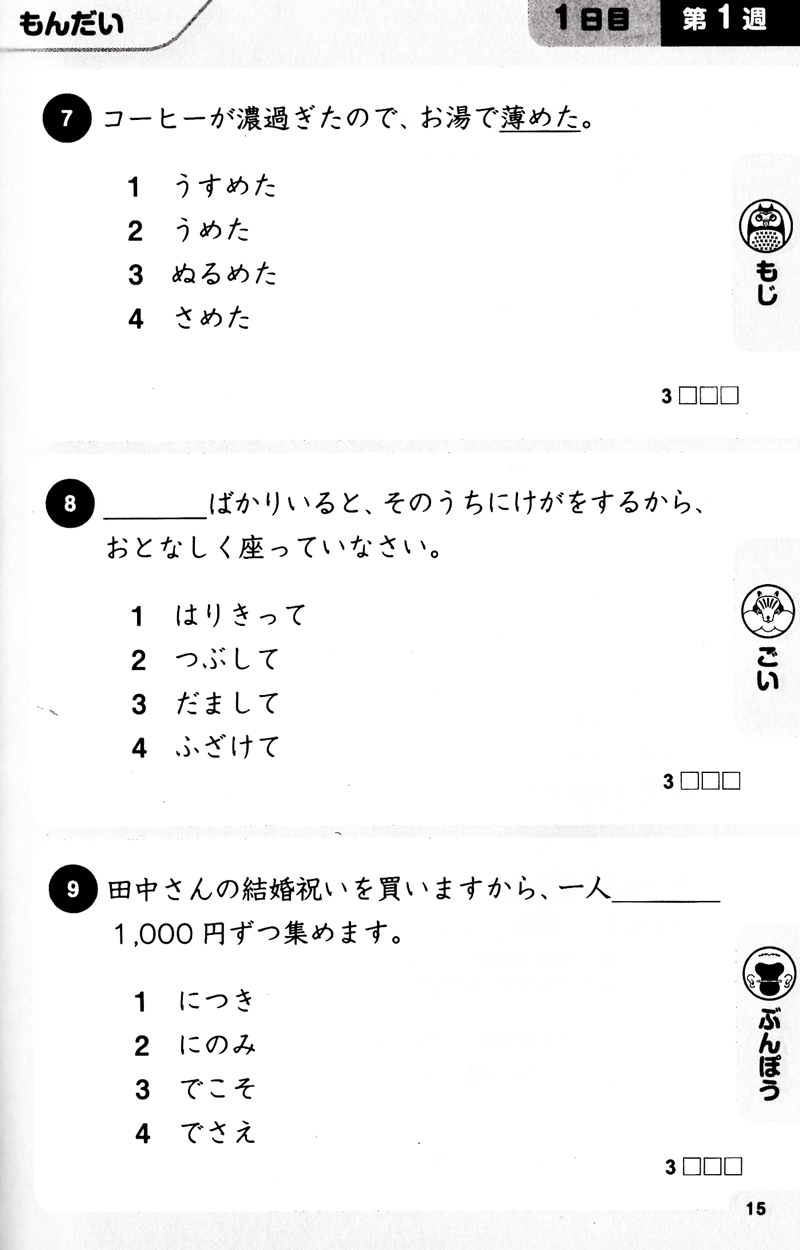 もんだい
1日目 第1週
7 コーヒーが濃過ぎたので、お湯で薄めた。
1 うすめた
2 うめた
3 ぬるめた
4 さめた
もじ
3 □□□
8 ______ばかりいると、そのうちにけがをするから、
おとなしく座っていなさい。
1 はりきって
2 つぶして
3 だまして
4 ふざけて
ごい
3 □□□
9 田中さんの結婚祝いを買いますから、一人______
1,000円ずつ集めます。
1 につき
2 にのみ
3 でこそ
4 でさえ
ぶんぽう
3 □□□
15